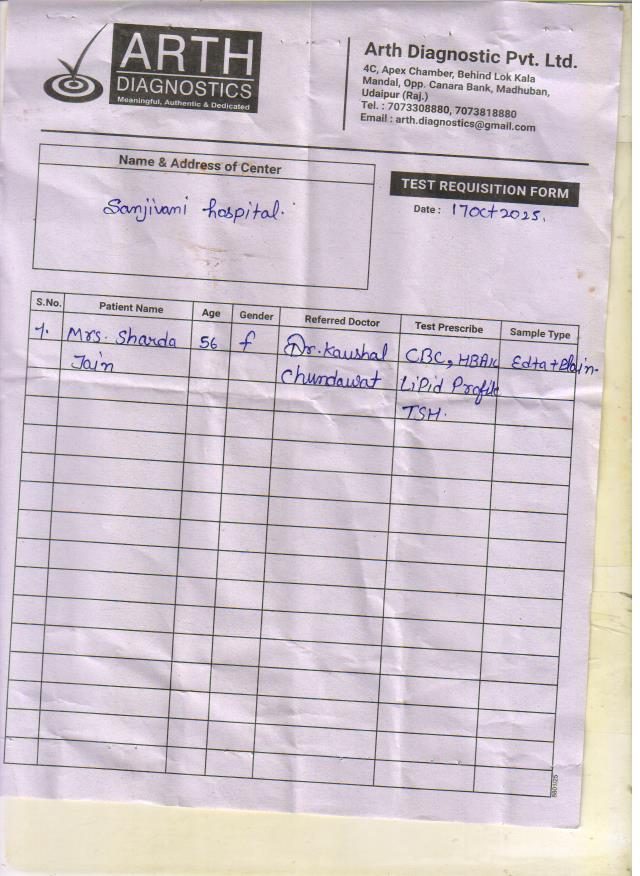 ARTH
DIAGNOSTICS
Meaningful, Authentic & Dedicated
Arth Diagnostic Pvt. Ltd.
4C, Apex Chamber, Behind Lok Kala
Mandal, Opp. Canara Bank, Madhuban,
Udaipur (Raj.)
Tel. : 7073308880, 7073818880
Email : arth.diagnostics@gmail.com
Name & Address of Center
Sanjivani hospital.
TEST REQUISITION FORM
Date : 17Oct2025.
S.No. Patient Name Age Gender Referred Doctor Test Prescribe Sample Type
1. Mrs. Sharda 56 f Dr. Kaushal CBC, HBA1c Edta + Plain.
Jain Chundawat Lipid Profile
TSH.